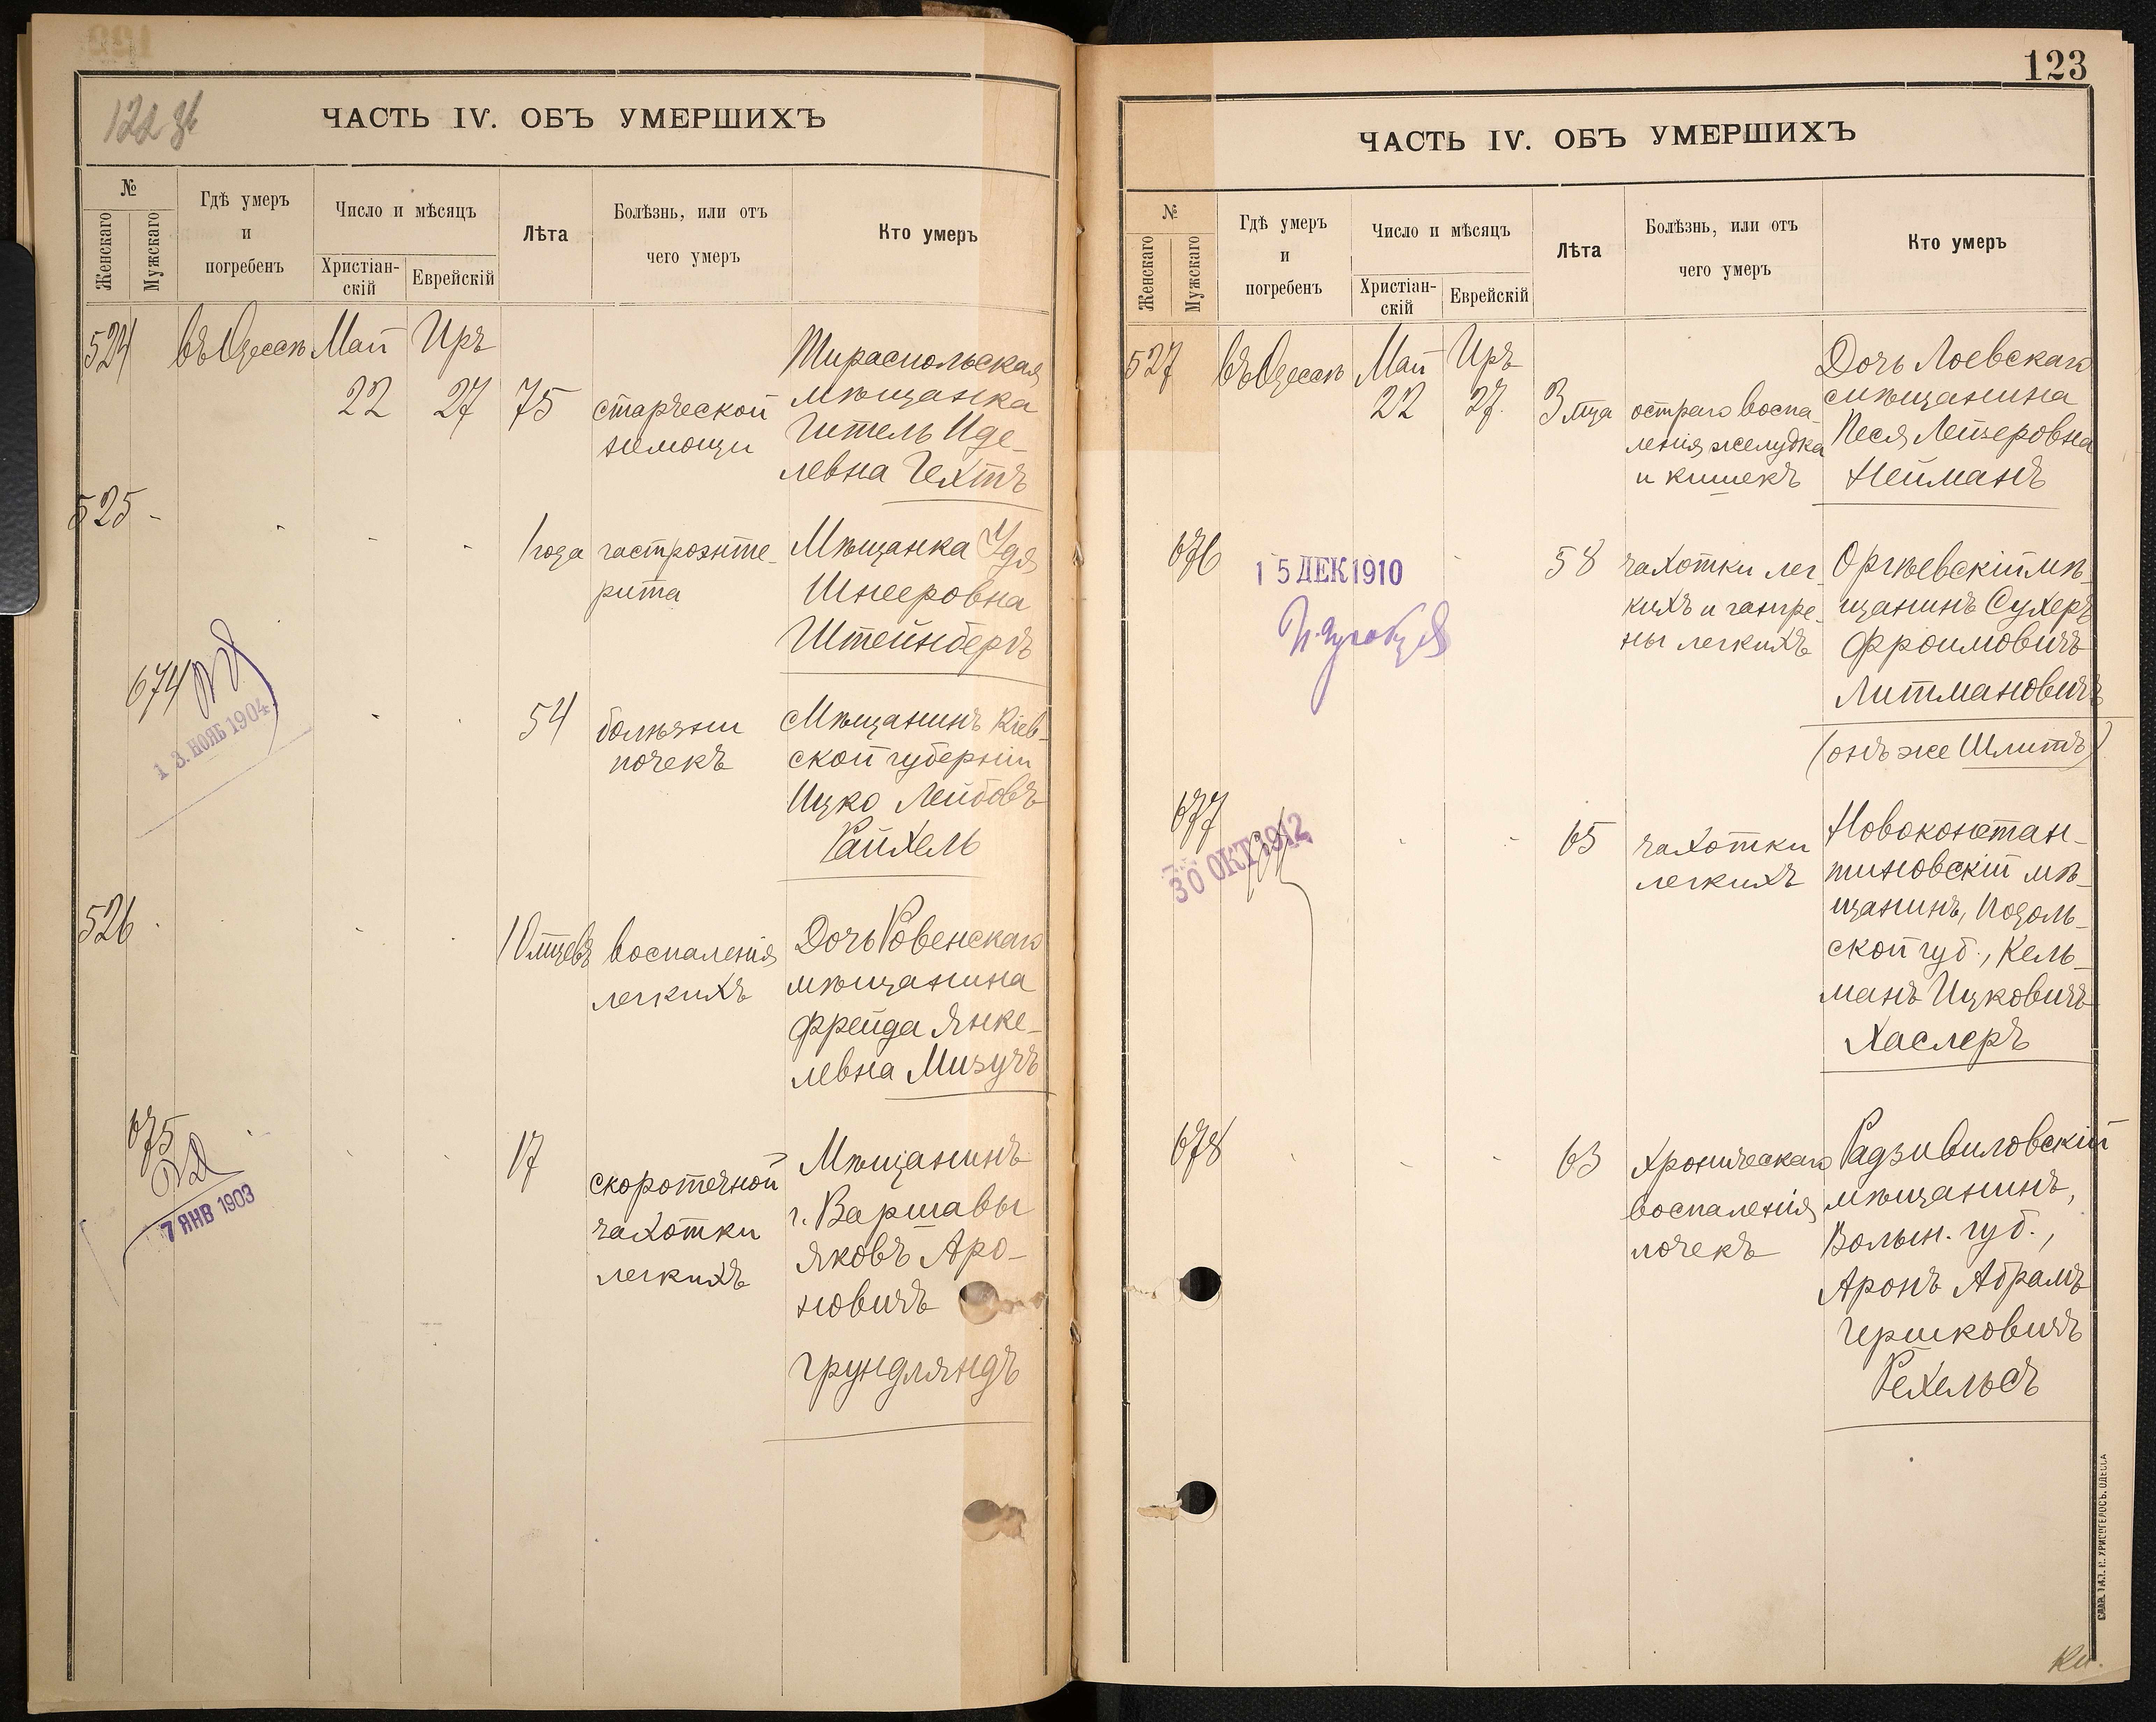 122 об
ЧАСТЬ IV. ОБЪ УМЕРШИХЪ
№
Женскаго
Мужскаго
Гдѣ умеръ
и
погребенъ
Число и мѣсяцъ
Христіан-
скій
Еврейскій
Лѣта
Болѣзнь, или отъ
чего умеръ
Кто умеръ
524
въ Одессѣ
Май
22
Иръ
27
75
старческой
немощи
Тираспольская
мѣщанка
Гитель Иде-
левна Гехтъ
525
1 года
гастроэнте-
рита
Мѣщанка Удя
Шнееровна
Штейнбергъ
674
13. НОЯБ 1904
54
болѣзни
почекъ
Мѣщанинъ Кіев-
ской губерніи
Ицко Лейбовъ
Райхель
526
10 мцевъ
воспаленія
легкихъ
Дочь Ровенскаго
мѣщанина
Фрейда Янке-
левна Мизучъ
675
7 ЯНВ 1903
17
скоротечной
чахотки
легкихъ
Мѣщанинъ
г. Варшавы
Яковъ Аро-
новичъ
Грундляндъ
123
ЧАСТЬ IV. ОБЪ УМЕРШИХЪ
№
Женскаго
Мужскаго
Гдѣ умеръ
и
погребенъ
Число и мѣсяцъ
Христіан-
скій
Еврейскій
Лѣта
Болѣзнь, или отъ
чего умеръ
Кто умеръ
527
въ Одессѣ
Май
22
Иръ
27.
3 мца
остраго воспа-
ленія желудка
и кишекъ
Дочь Лоевскаго
мѣщанина
Песя Лейзеровна
Нейманъ
676
15 ДЕК 1910
58
чахотки лег-
кихъ и гангре-
ны легкихъ
Оргѣевскій мѣ-
щанинъ Сухеръ
Фроимовичъ
Литмановичъ
(онъ же Шлитъ)
677
30 ОКТ 1912
65
чахотки
легкихъ
Новоконстан-
тиновскій мѣ-
щанинъ, Подоль-
ской губ., Кель-
манъ Ицковичъ
Хаслеръ
678
63
хроническаго
воспаленія
почекъ
Радзивиловскій
мѣщанинъ,
Волын. губ.,
Аронъ Абрамъ
Гершковичъ
Рехельсъ